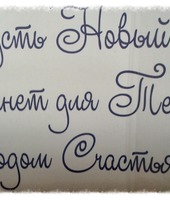 усть Новый
нет для Те
одом Счастья